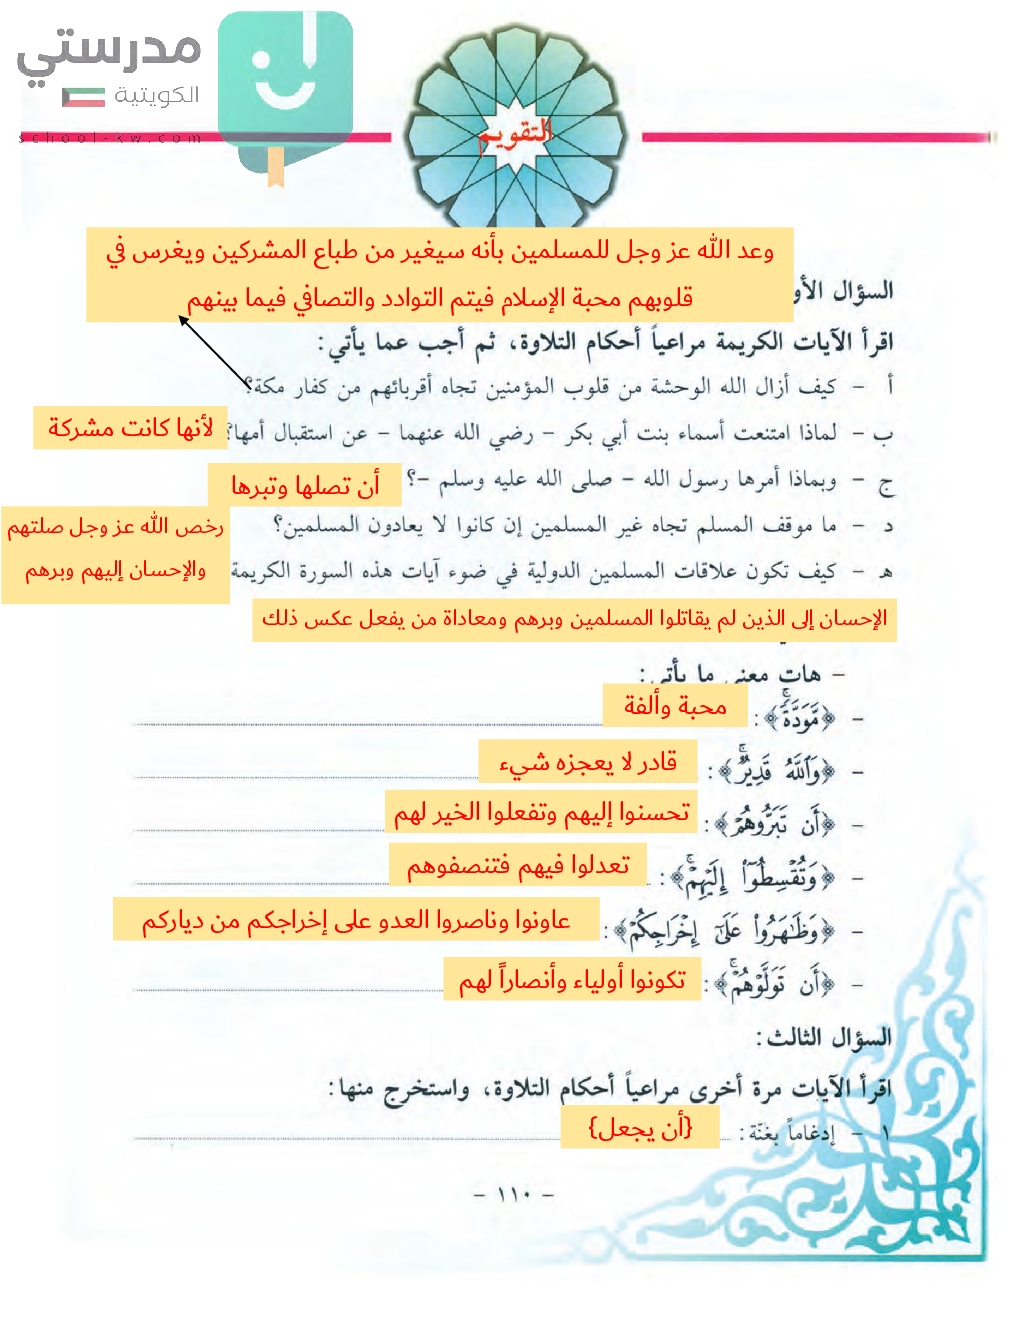 مدرستي
الكويتية
school-kw.com
التقويم
وعد الله عز وجل للمسلمين بأنه سيغير من طباع المشركين ويغرس في
قلوبهم محبة الإسلام فيتم التوادد والتصافي فيما بينهم
السؤال الأو
اقرأ الآيات الكريمة مراعياً أحكام التلاوة، ثم أجب عما يأتي:
أ – كيف أزال الله الوحشة من قلوب المؤمنين تجاه أقربائهم من كفار مكة؟
ب – لماذا امتنعت أسماء بنت أبي بكر – رضي الله عنهما – عن استقبال أمها؟ لأنها كانت مشركة
ج – وبماذا أمرها رسول الله – صلى الله عليه وسلم –؟ أن تصلها وتبرها
د – ما موقف المسلم تجاه غير المسلمين إن كانوا لا يعادون المسلمين؟ رخص الله عز وجل صلتهم
والإحسان إليهم وبرهم
هـ – كيف تكون علاقات المسلمين الدولية في ضوء آيات هذه السورة الكريمة
الإحسان إلى الذين لم يقاتلوا المسلمين وبرهم ومعاداة من يفعل عكس ذلك
– هات معنى ما يأتي:
– ﴿مَّوَدَّةٗۚ﴾: محبة وألفة
– ﴿وَٱللَّهُ قَدِيرٞۚ﴾: قادر لا يعجزه شيء
– ﴿أَن تَبَرُّوهُمۡ﴾: تحسنوا إليهم وتفعلوا الخير لهم
– ﴿وَتُقۡسِطُوٓاْ إِلَيۡهِمۡۚ﴾: تعدلوا فيهم فتنصفوهم
– ﴿وَظَٰهَرُواْ عَلَىٰٓ إِخۡرَاجِكُمۡ﴾: عاونوا وناصروا العدو على إخراجكم من دياركم
– ﴿أَن تَوَلَّوۡهُمۡۚ﴾: تكونوا أولياء وأنصاراً لهم
السؤال الثالث:
اقرأ الآيات مرة أخرى مراعياً أحكام التلاوة، واستخرج منها:
١ – إدغاماً بغنّة: {أن يجعل}
– ١١٠ –